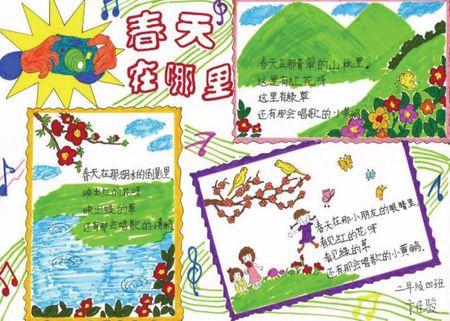 春天
在哪里
春天在那青翠的山林里。
这里有红花呀
这里有绿草
还有那会唱歌的小黄鹂
春天在那湖水的倒影里
映出红的花呀
映出绿的草
还有那会唱歌的
春天在那小朋友的眼睛里
看见红的花呀
看见绿的草
还有那会唱歌的小黄鹂。
二年级四班